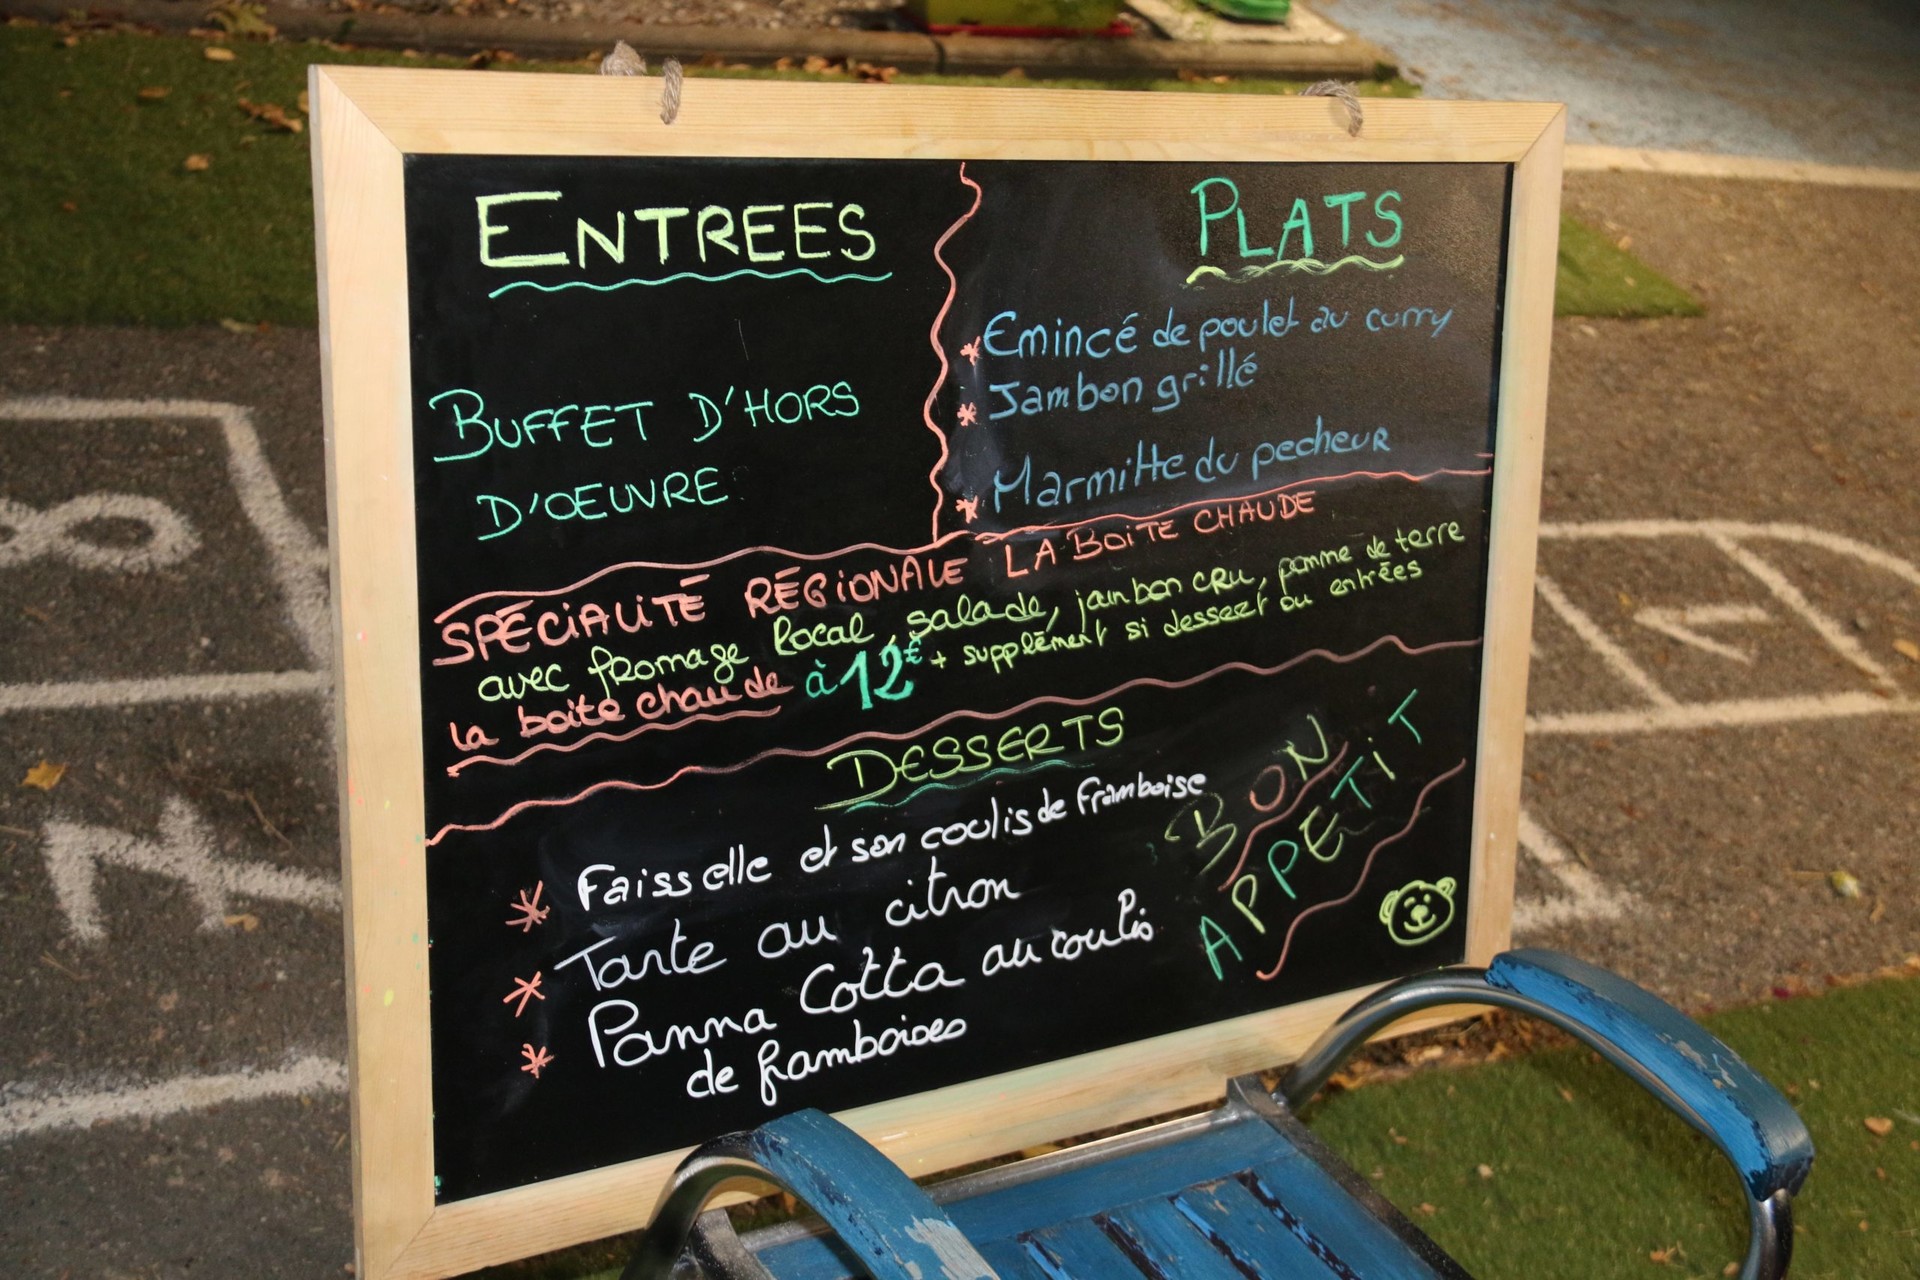 ENTREES
BUFFET D'HORS
D'OEUVRE
PLATS
* Emincé de poulet au curry
* Jambon grillé
* Marmitte du pecheur
SPÉCIALITÉ RÉGIONALE LA BOITE CHAUDE
avec fromage local, salade, jambon cru, pomme de terre
la boite chaude à 12€ + supplément si dessert ou entrées
DESSERTS
* Faisselle et son coulis de framboise
* Tarte au citron
* Panna Cotta au coulis
de framboises
BON
APPETIT
8
7